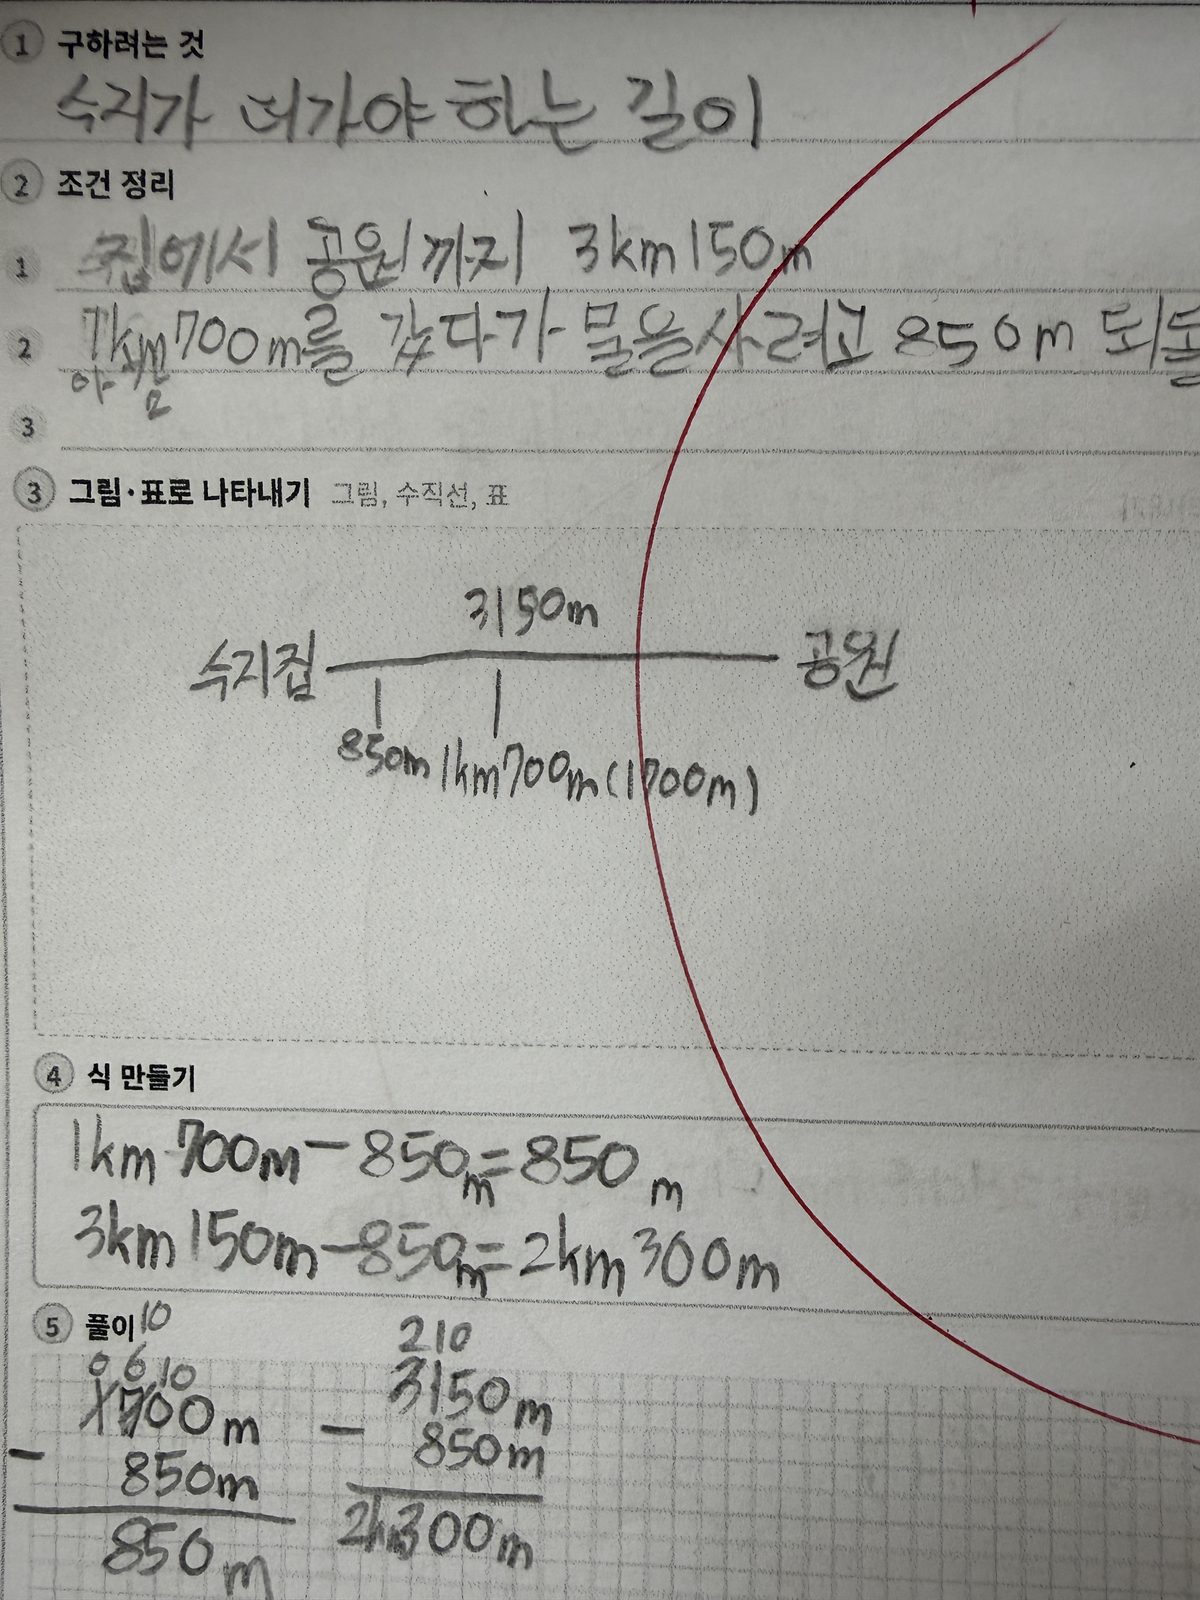 1 구하려는 것
수지가 더가야 하는 길이
2 조건 정리
1 집에서 공원까지 3km150m
2 1km700m를 갔다가 물을사려고 850m 되돌
아
3
3 그림·표로 나타내기 그림, 수직선, 표
3150m
수지집 공원
850m 1km700m(1700m)
4 식 만들기
1km 700m-850m=850m
3km150m-850m=2km300m
5 풀이
10 2 10
0 6 10 3150m
1700m - 850m
- 850m 2km300m
850m